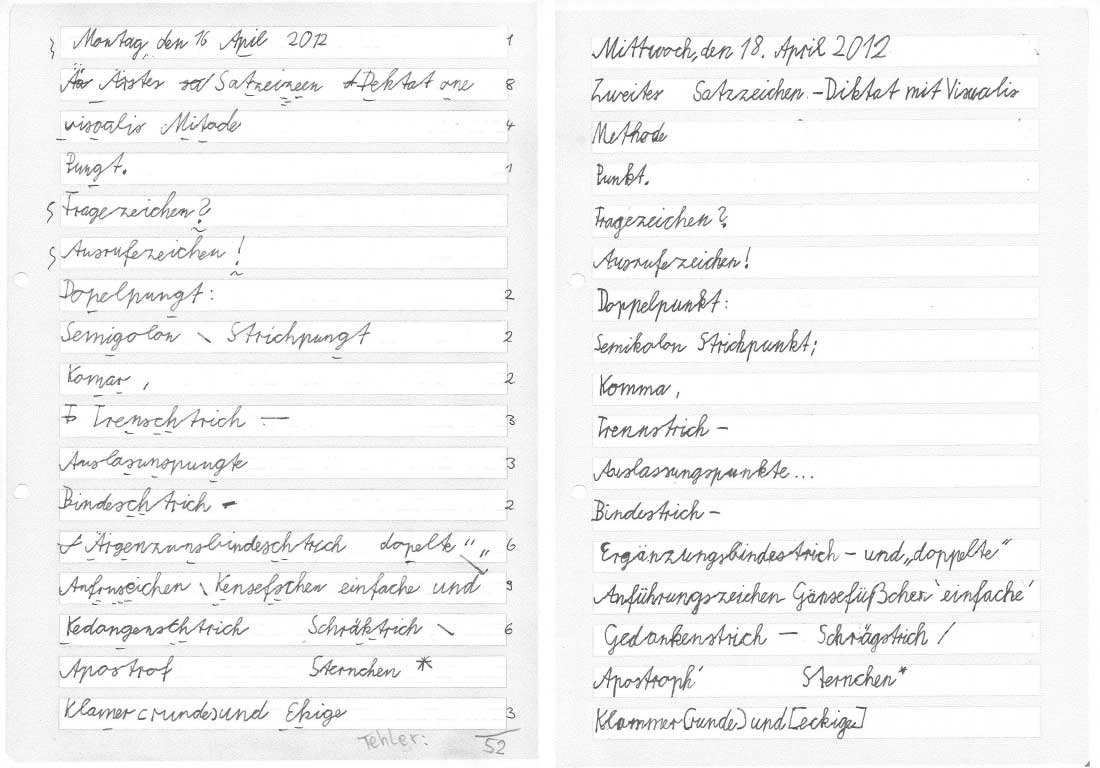 Montag, den 16 April 2012 1
Ärster Satzeizeen Dektat one 8
visoalis Mitode 4
Pungt. 1
Fragezeichen?
Ausrufezeichen!
Dopelpungt: 2
Semigolon \ Strichpungt 2
Komar , 2
Trenschtrich — 3
Auslasunspungte 3
Bindeschtrich - 2
Ärgenzunsbindeschtrich dopelte " „ 6
Anfrunseichen \ Kensefschen einfache und 9
Kedangenschtrich Schräktrich \ 6
Apostrof Sternchen *
Klamer (runde) und Ekige 3
Fehler: 52
Mittwoch, den 18. April 2012
Zweiter Satzzeichen-Diktat mit Visualis
Methode
Punkt.
Fragezeichen?
Ausrufezeichen!
Doppelpunkt:
Semikolon Strichpunkt;
Komma,
Trennstrich -
Auslassungspunkte...
Bindestrich -
Ergänzungsbindestrich - und „doppelte"
Anführungszeichen Gänsefüßchen 'einfache'
Gedankenstrich — Schrägstrich /
Apostroph' Sternchen*
Klammer (runde) und [eckige]